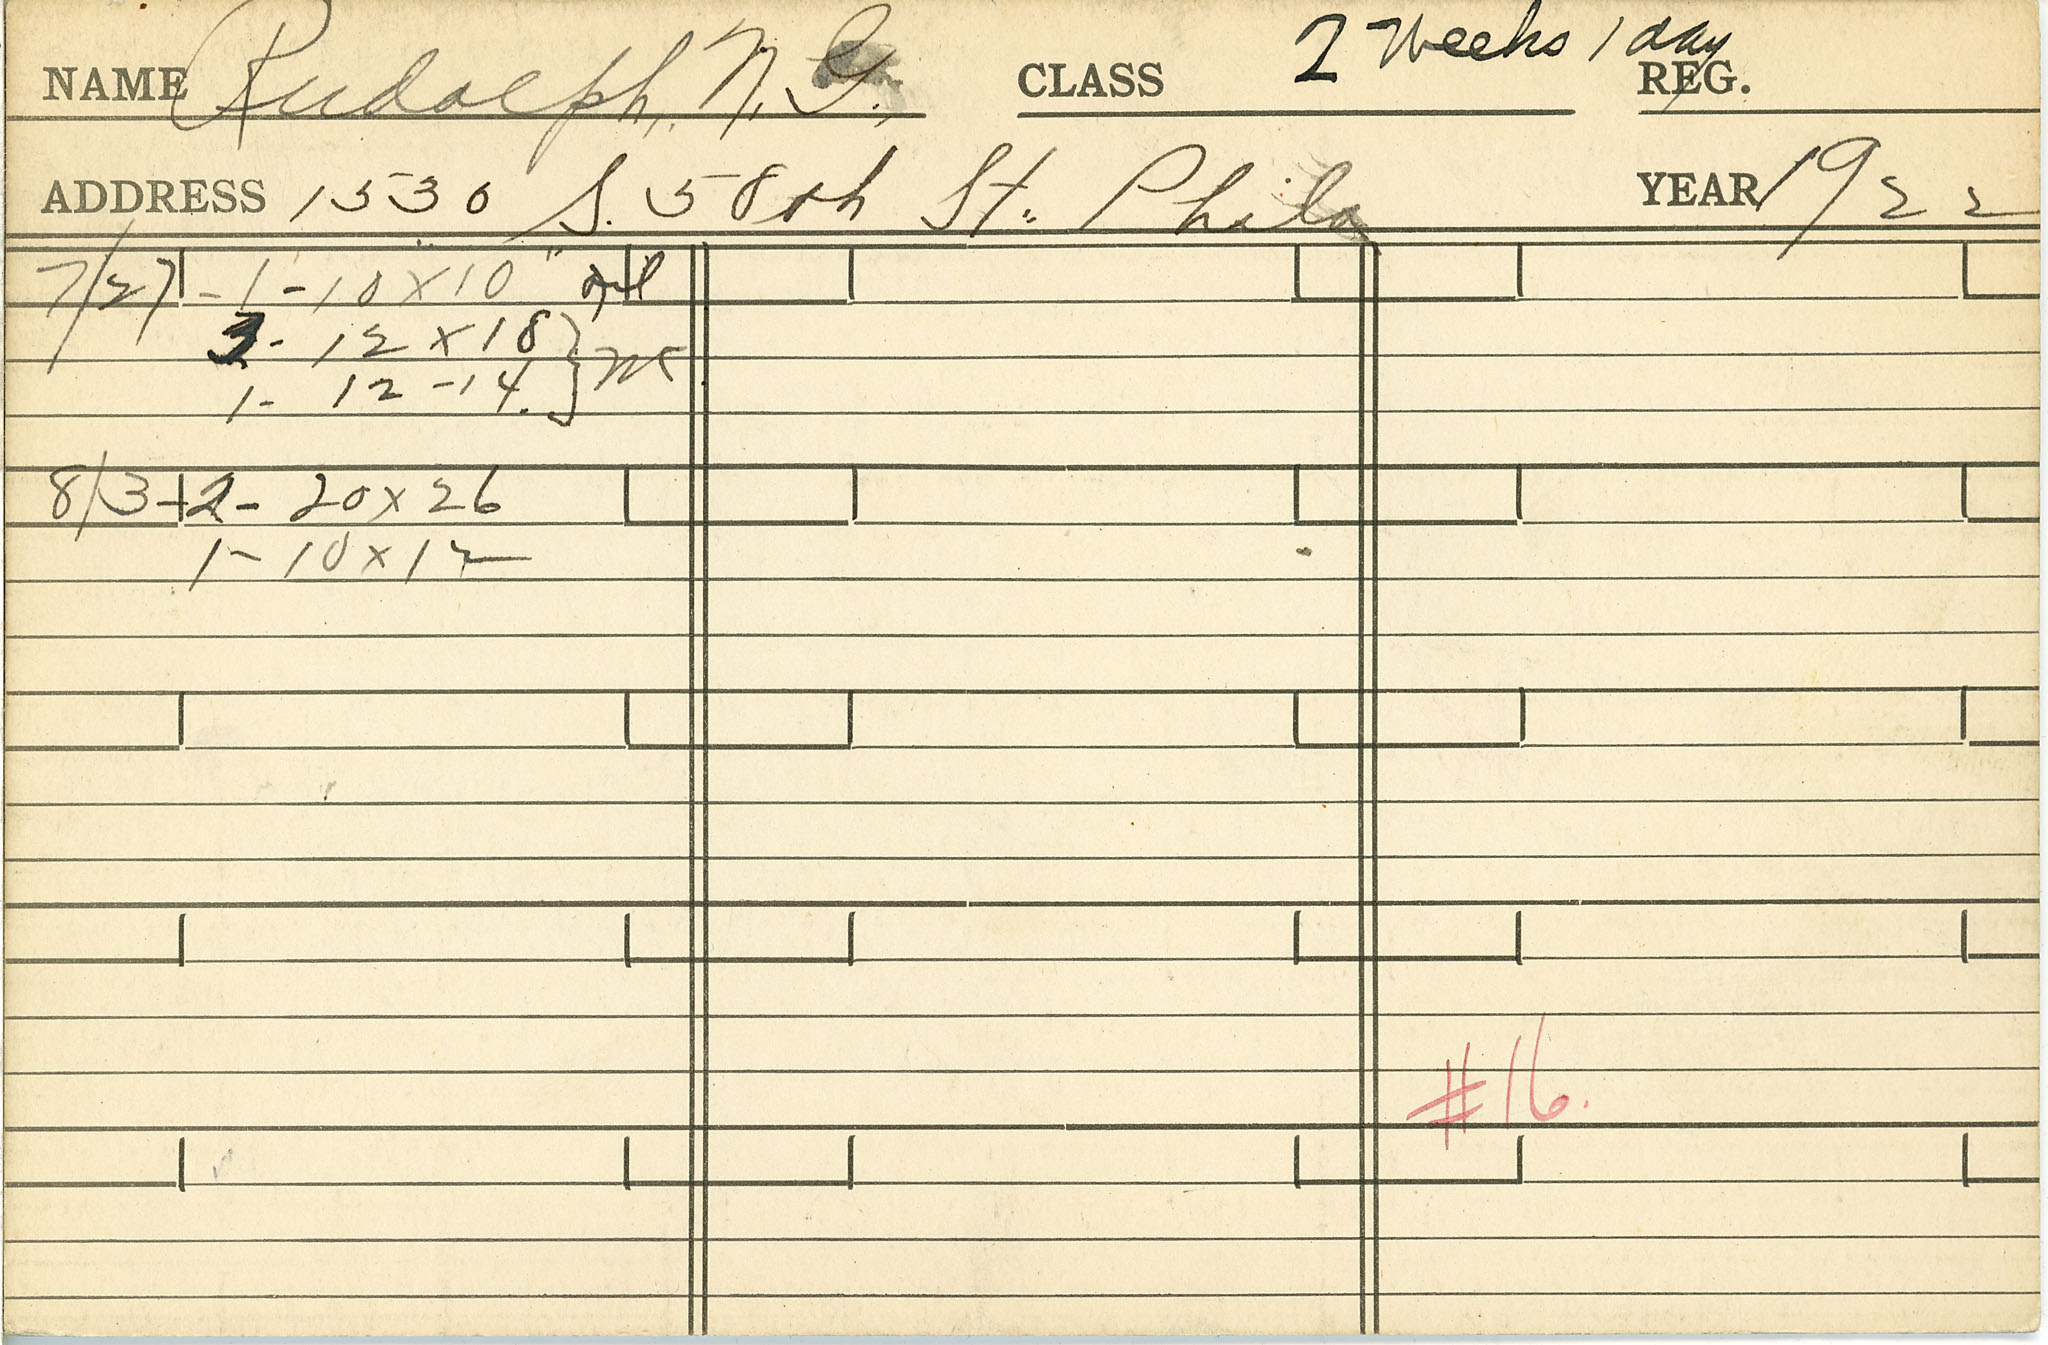 NAME Rudolph, N. G. CLASS 2 Weeks 1 day REG.
ADDRESS 1530 S. 58th St. Phila YEAR 1922
7/27 - 1 - 10 x 10" oil
3 - 12 x 18
1 - 12 - 14.
8/3 - 2 - 20 x 26
1 - 10 x 12
#16.